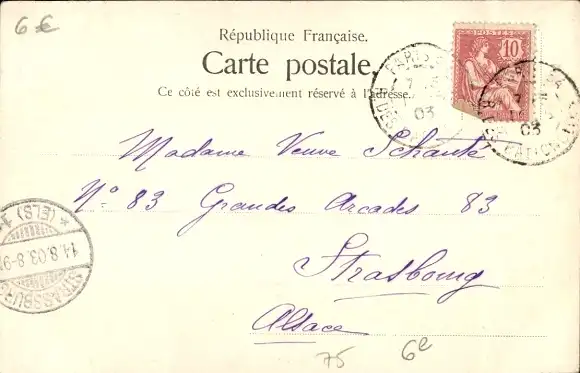 6 €
République Française.
Carte postale.
Ce côté est exclusivement réservé à l'adresse.
POSTES
10
PARIS
03
PARIS
03
Madame Veuve Schanté
N° 83 Grandes Arcades 83
Strasbourg
Alsace
STRASSBURG
* (ELS) 1
14.8.03.8-9
75
6e